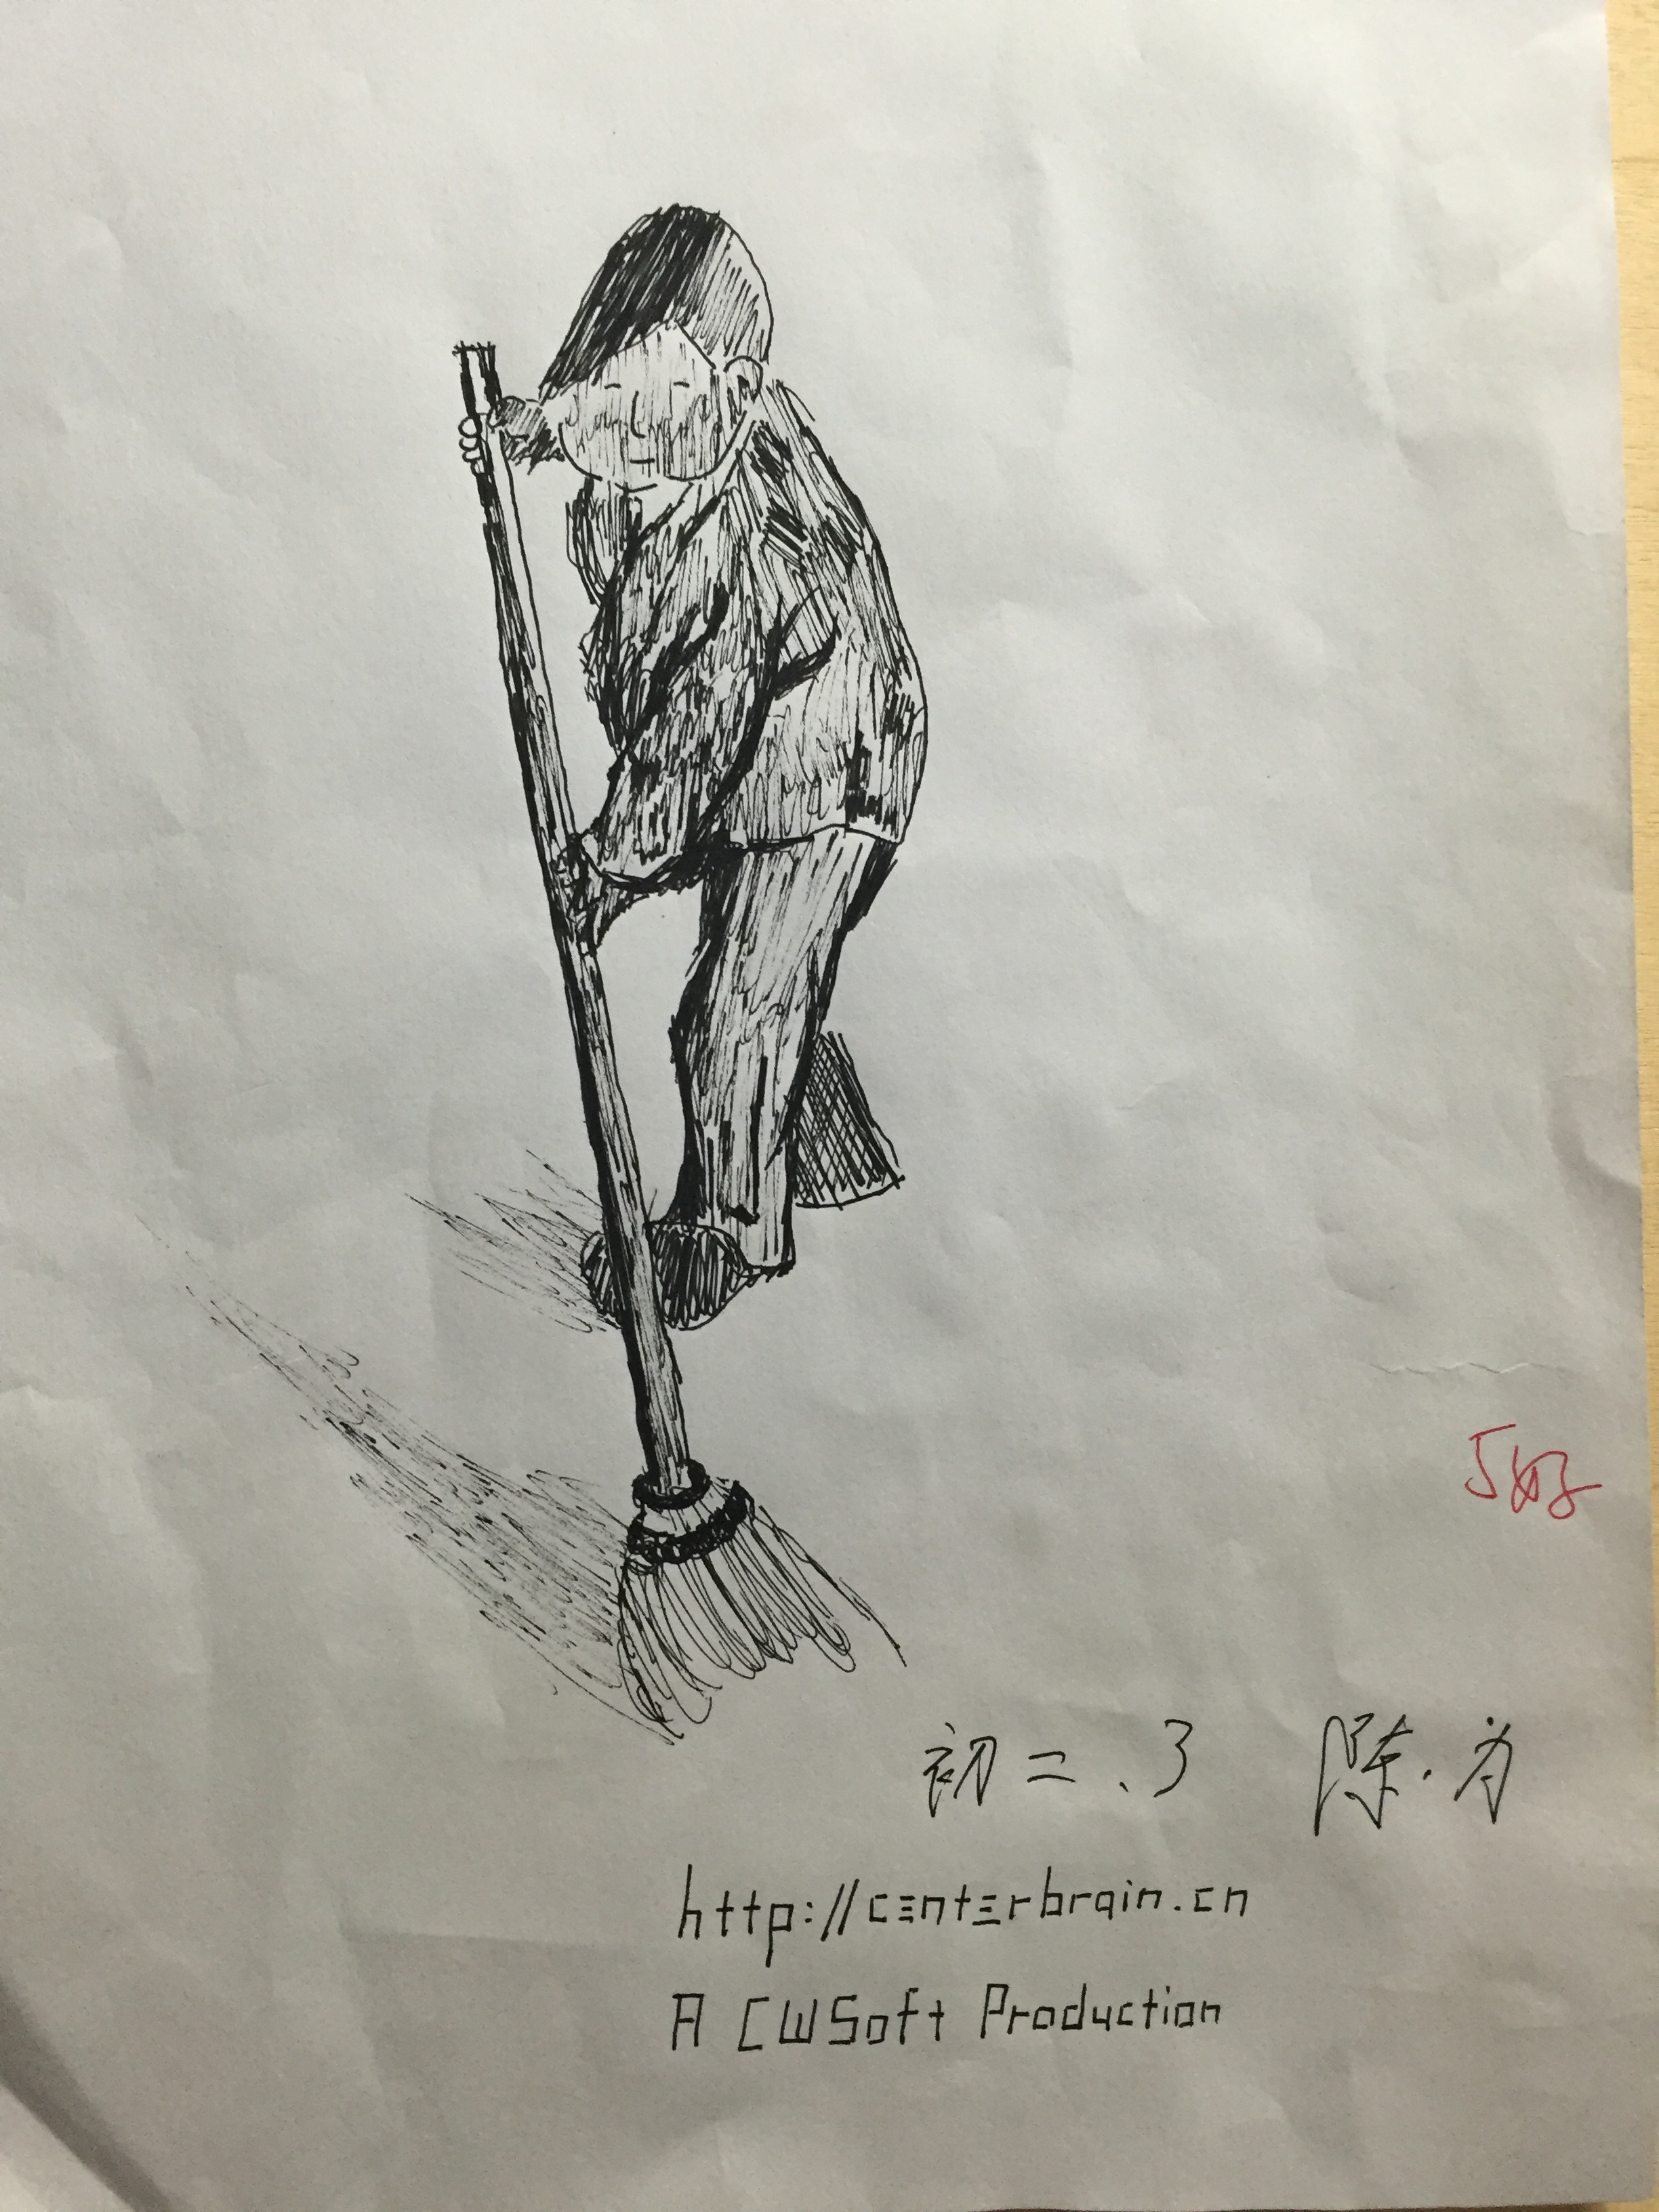 5好
初二、3 陈·为
http://centerbrain.cn
A CWSoft Production